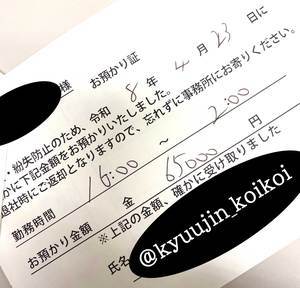 様 お預かり証
紛失防止のため、令和 8 年 4 月 23 日に
かに下記金額をお預かりいたしました。
退社時にご返却となりますので、忘れずに事務所にお寄りください。
勤務時間 16:00 〜 2:00
お預かり金額 金 65000 円
※上記の金額、確かに受け取りました
氏名
@kyuujin_koikoi